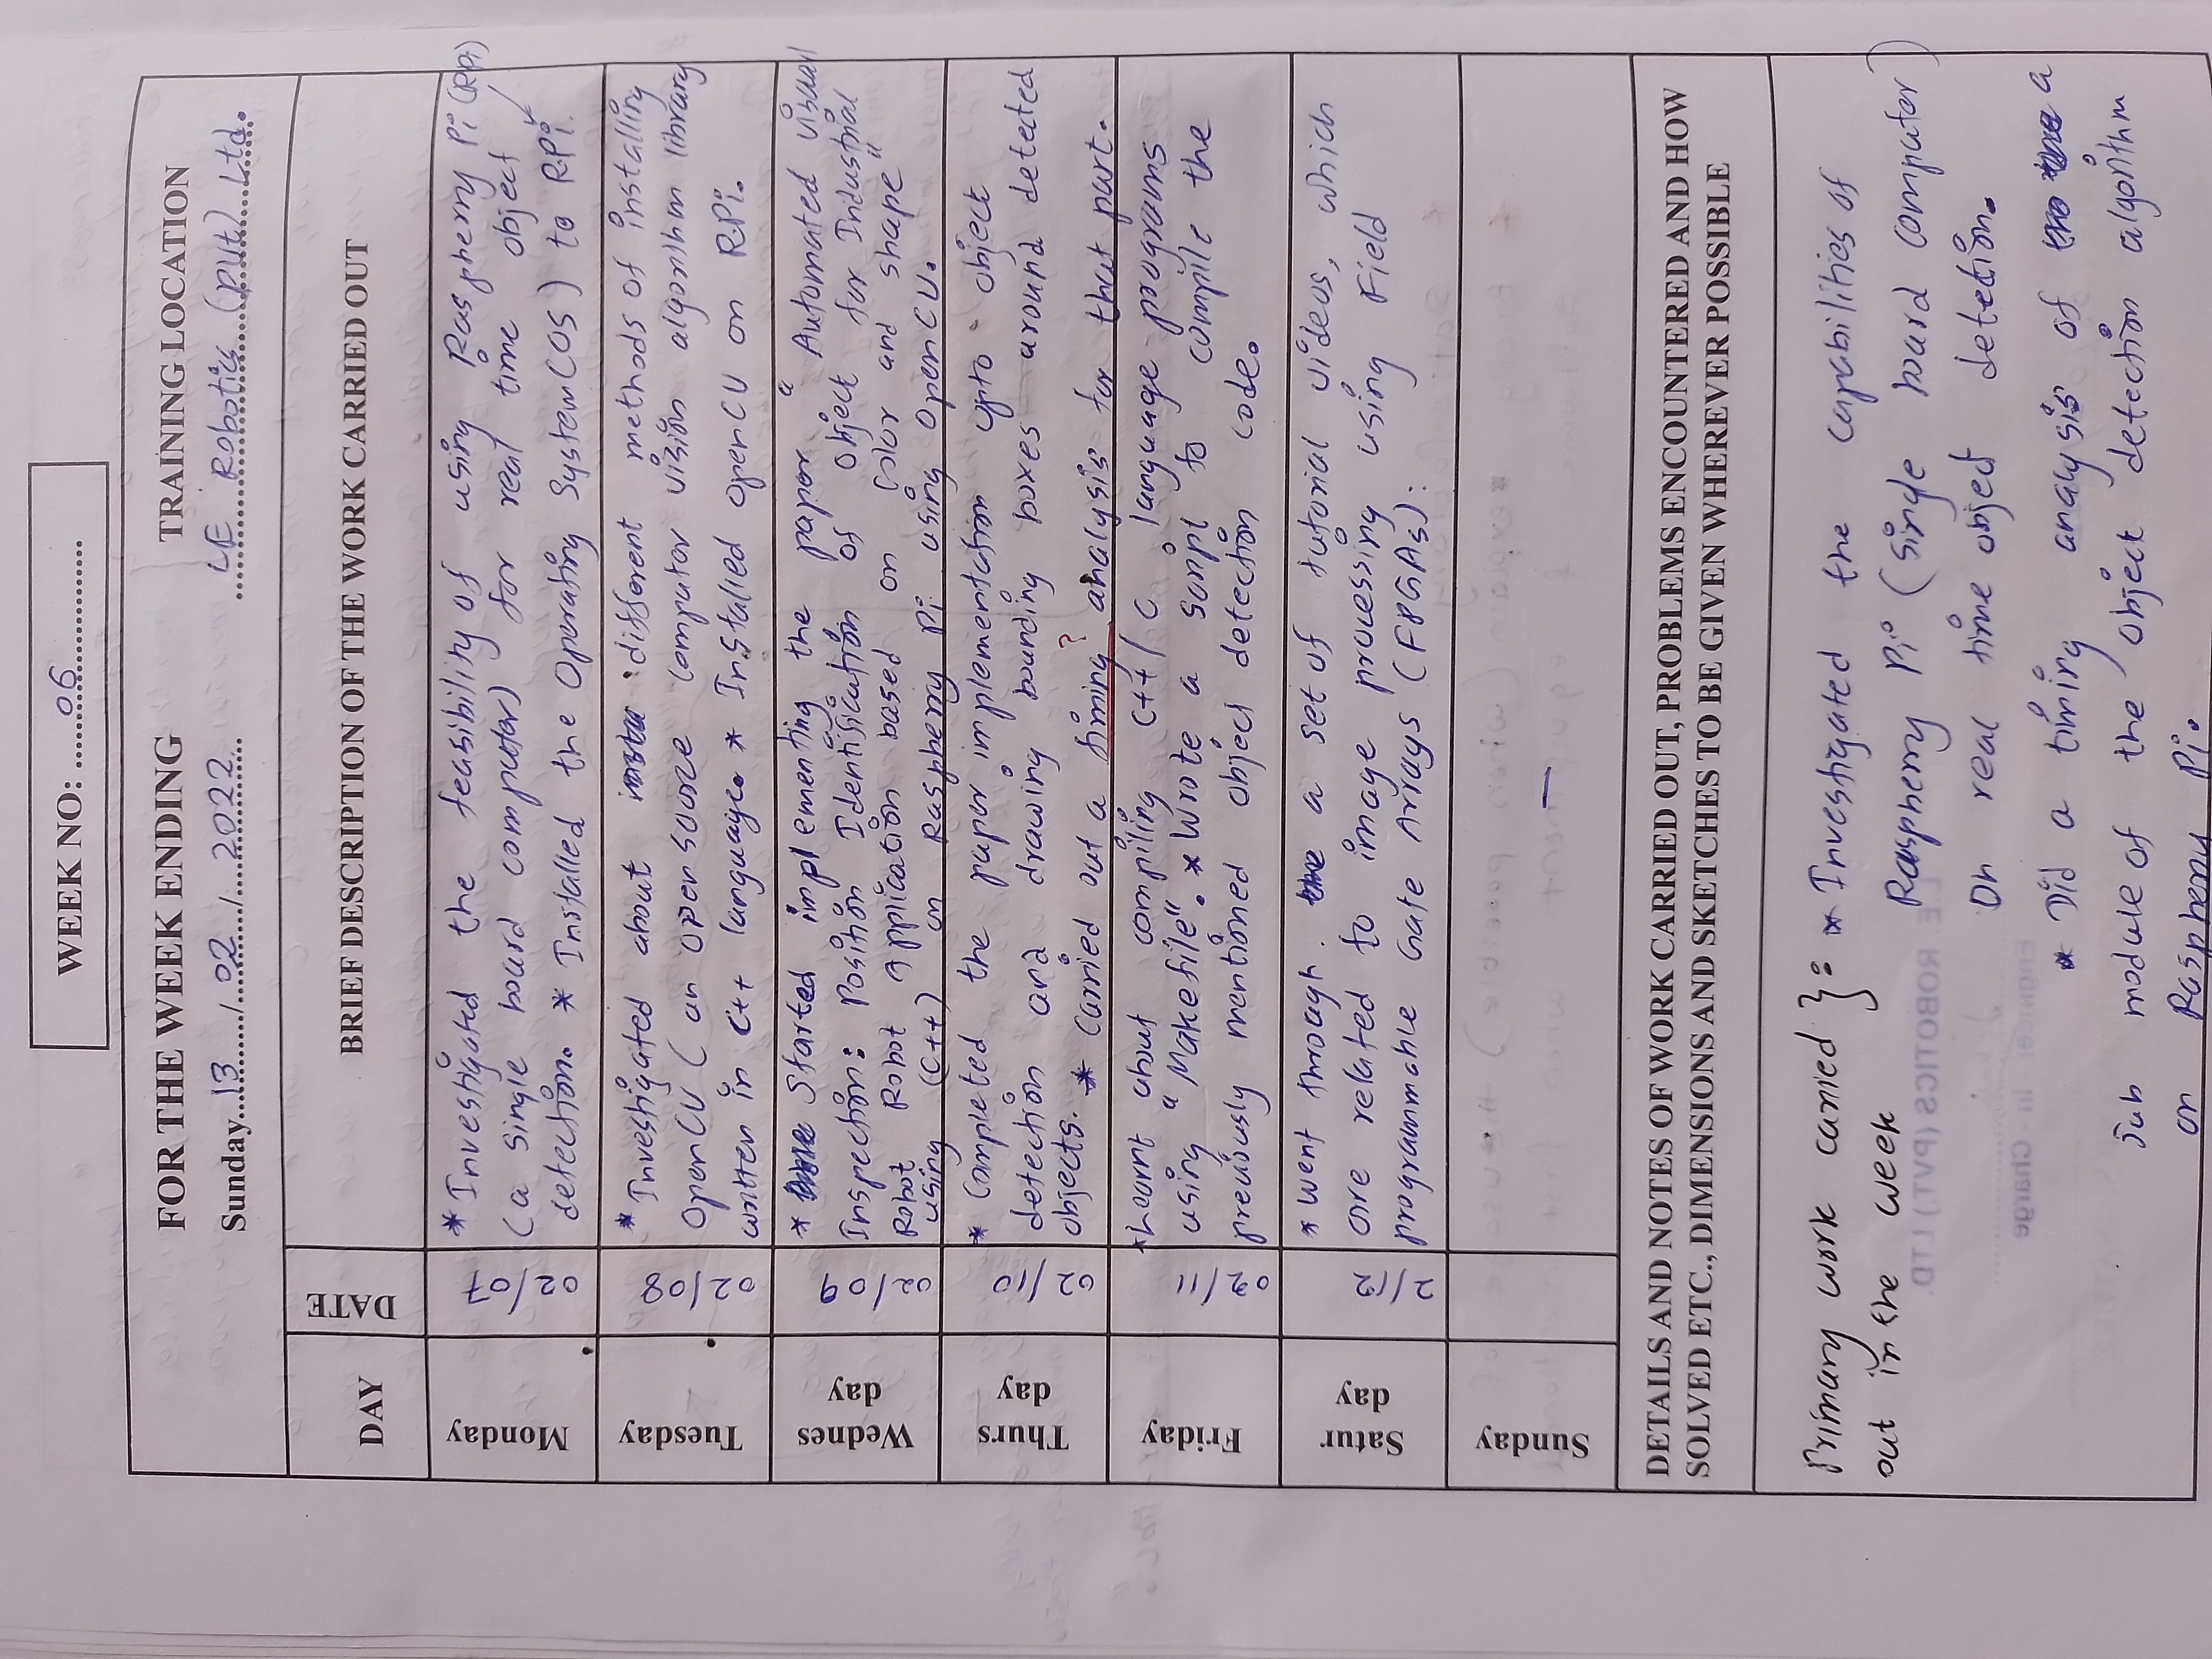 WEEK NO: ....06....
FOR THE WEEK ENDING
TRAINING LOCATION
Sunday...13..../...02.../...2022...
LE Robotics (pvt) Ltd.
DAY
DATE
BRIEF DESCRIPTION OF THE WORK CARRIED OUT
Monday
02/07
* Investigated the feasibility of using Raspberry Pi (RPi)
(a single board computer) for real time object
detection. * Installed the Operating System (OS) to R.Pi.
Tuesday
02/08
* Investigated about different methods of installing
OpenCV ( an open source computer vision algorithm library
written in C++ language. * Installed OpenCV on R.Pi.
Wednes
day
02/09
* Started implementing the paper " Automated visual
Inspection: Position Identification of Object for Industrial
Robot Robot Application based on Color and shape"
using (C++) on Raspberry Pi using OpenCV.
Thurs
day
02/10
* Completed the paper implementation upto object
detection and drawing bounding boxes around detected
objects. * Carried out a timing ? analysis for that part.
Friday
02/11
* Learnt about compiling C++/ C language programs
using "Makefile". * Wrote a script to compile the
previously mentioned object detection code.
Satur
day
2/12
* Went through a set of tutorial videos, which
are related to image processing using Field
programmable Gate Arrays (FPGAs).
Sunday
—
DETAILS AND NOTES OF WORK CARRIED OUT, PROBLEMS ENCOUNTERED AND HOW
SOLVED ETC., DIMENSIONS AND SKETCHES TO BE GIVEN WHEREVER POSSIBLE
Primary work carried }: * Investigated the capabilities of
out in the week Raspberry Pi (Single board computer)
on real time object detection.
* Did a timing analysis of a
sub module of the object detection algorithm
on Raspberry Pi.